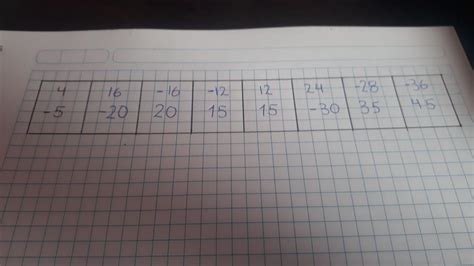 4 16 -16 -12 12 24 -28 -36
-5 -20 20 15 15 -30 35 45